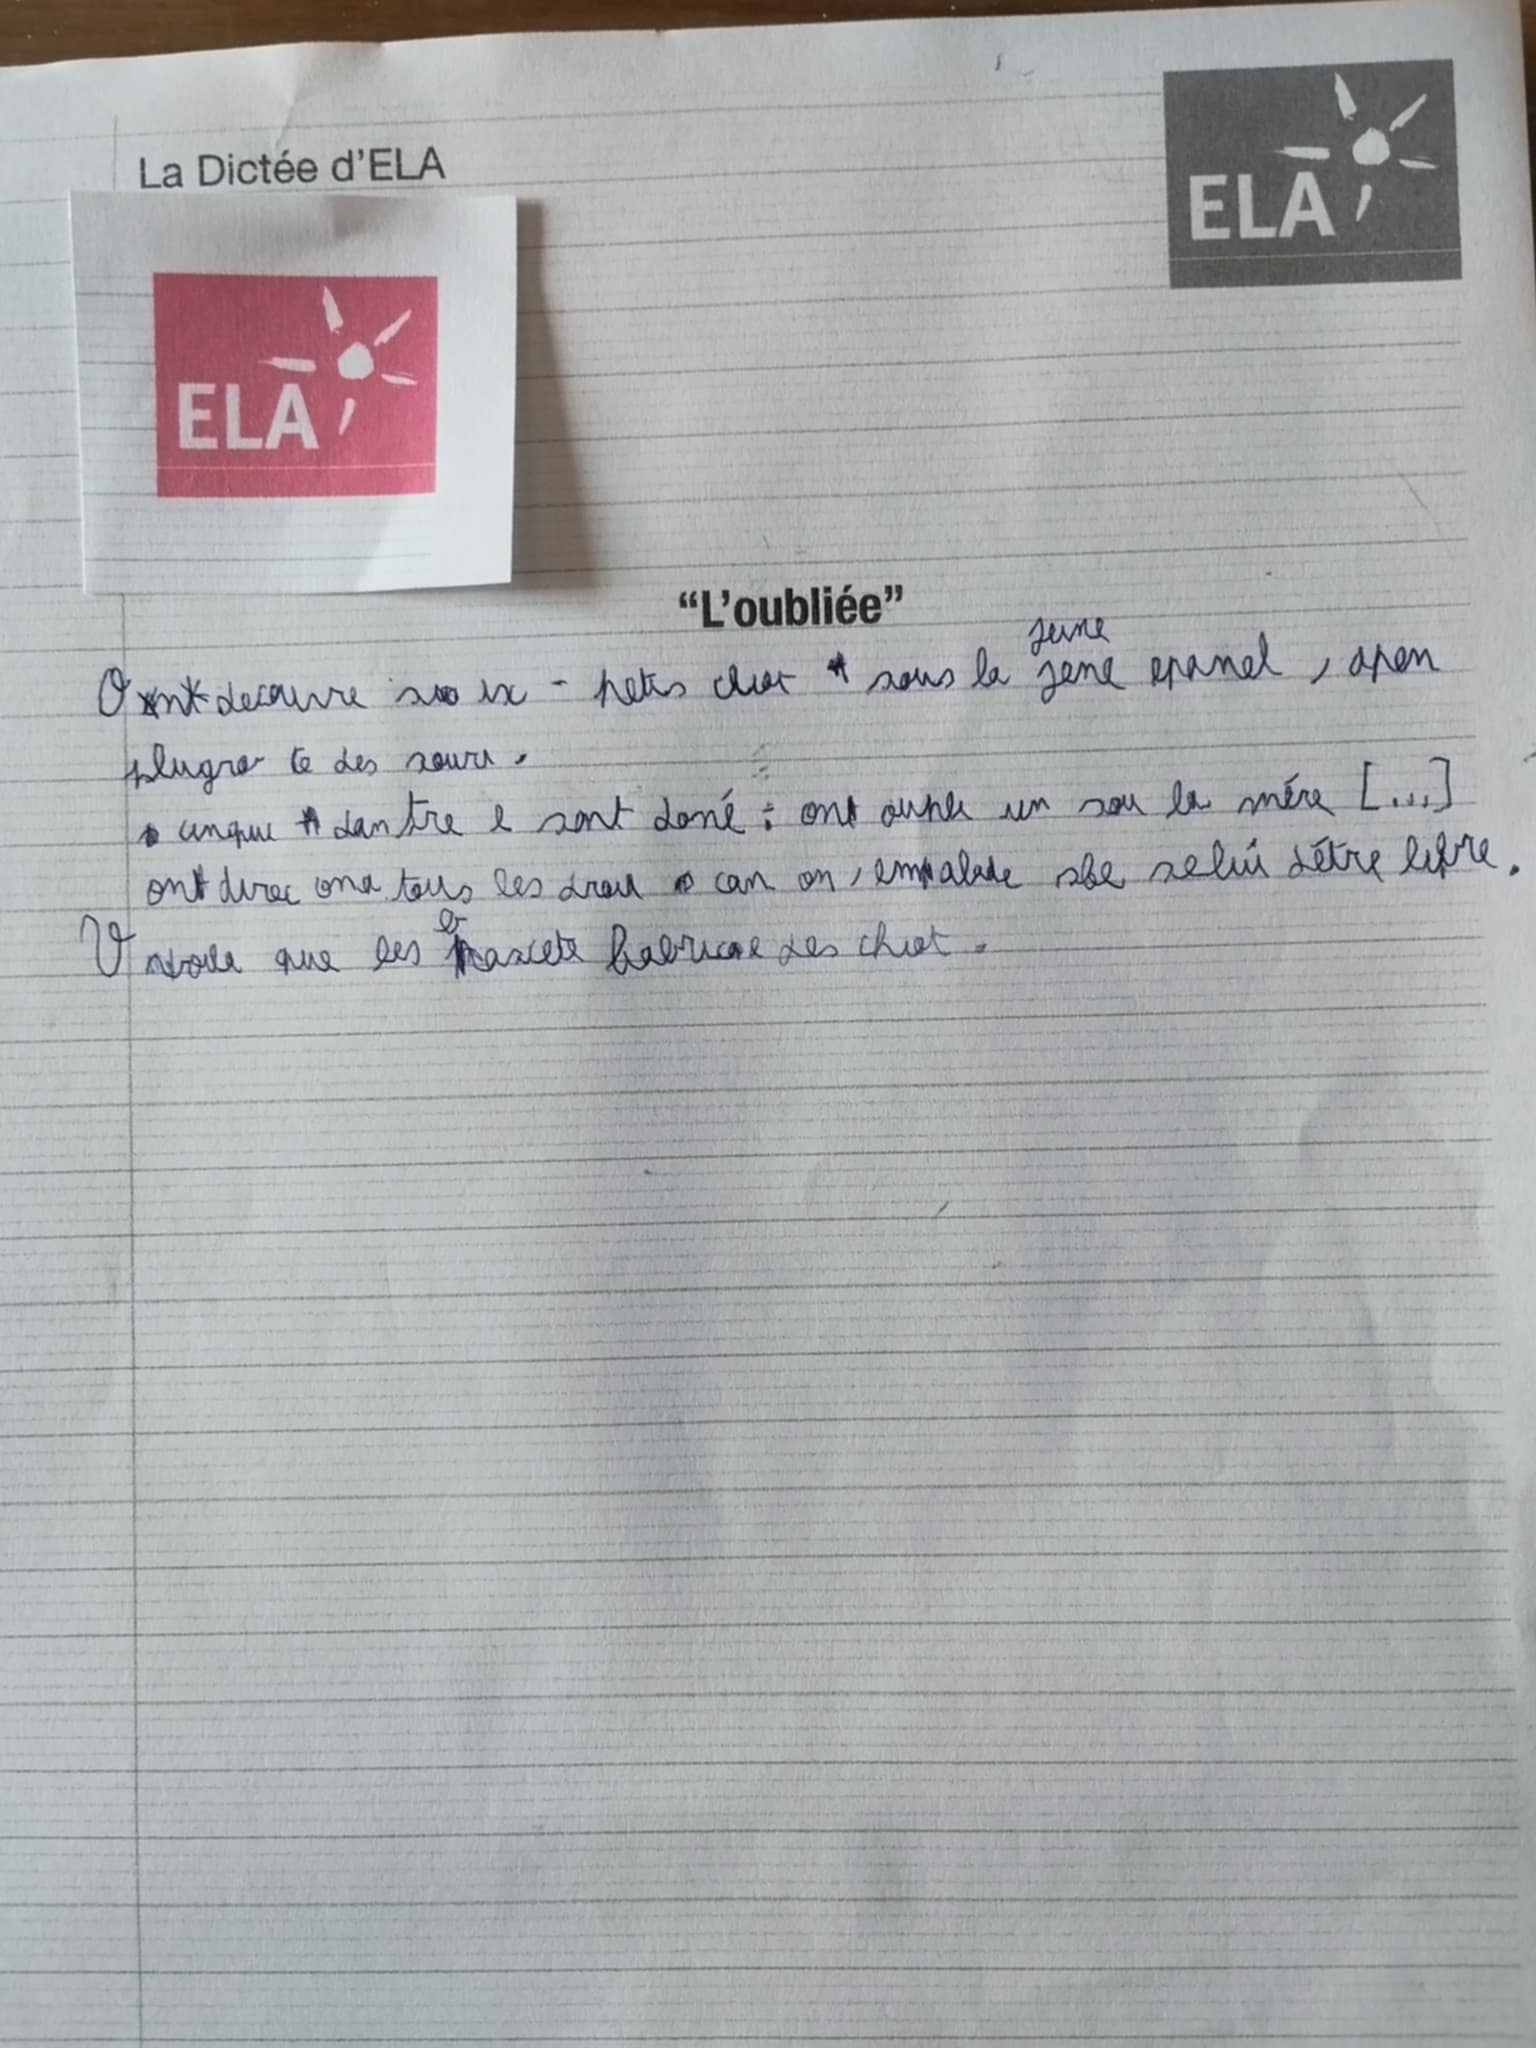 La Dictée d'ELA
ELA
ELA
"L'oubliée"
jeune
On decouvre six - petis chiot sous la jene epanel, apen
plugro te des souri.
cinque dantre e sont doné : ont ouple un sou la mére [...]
ont direc ona tous les droi can on, emalade sbe selui d'être libre.
V voila que les basicete fabrique des chiot.